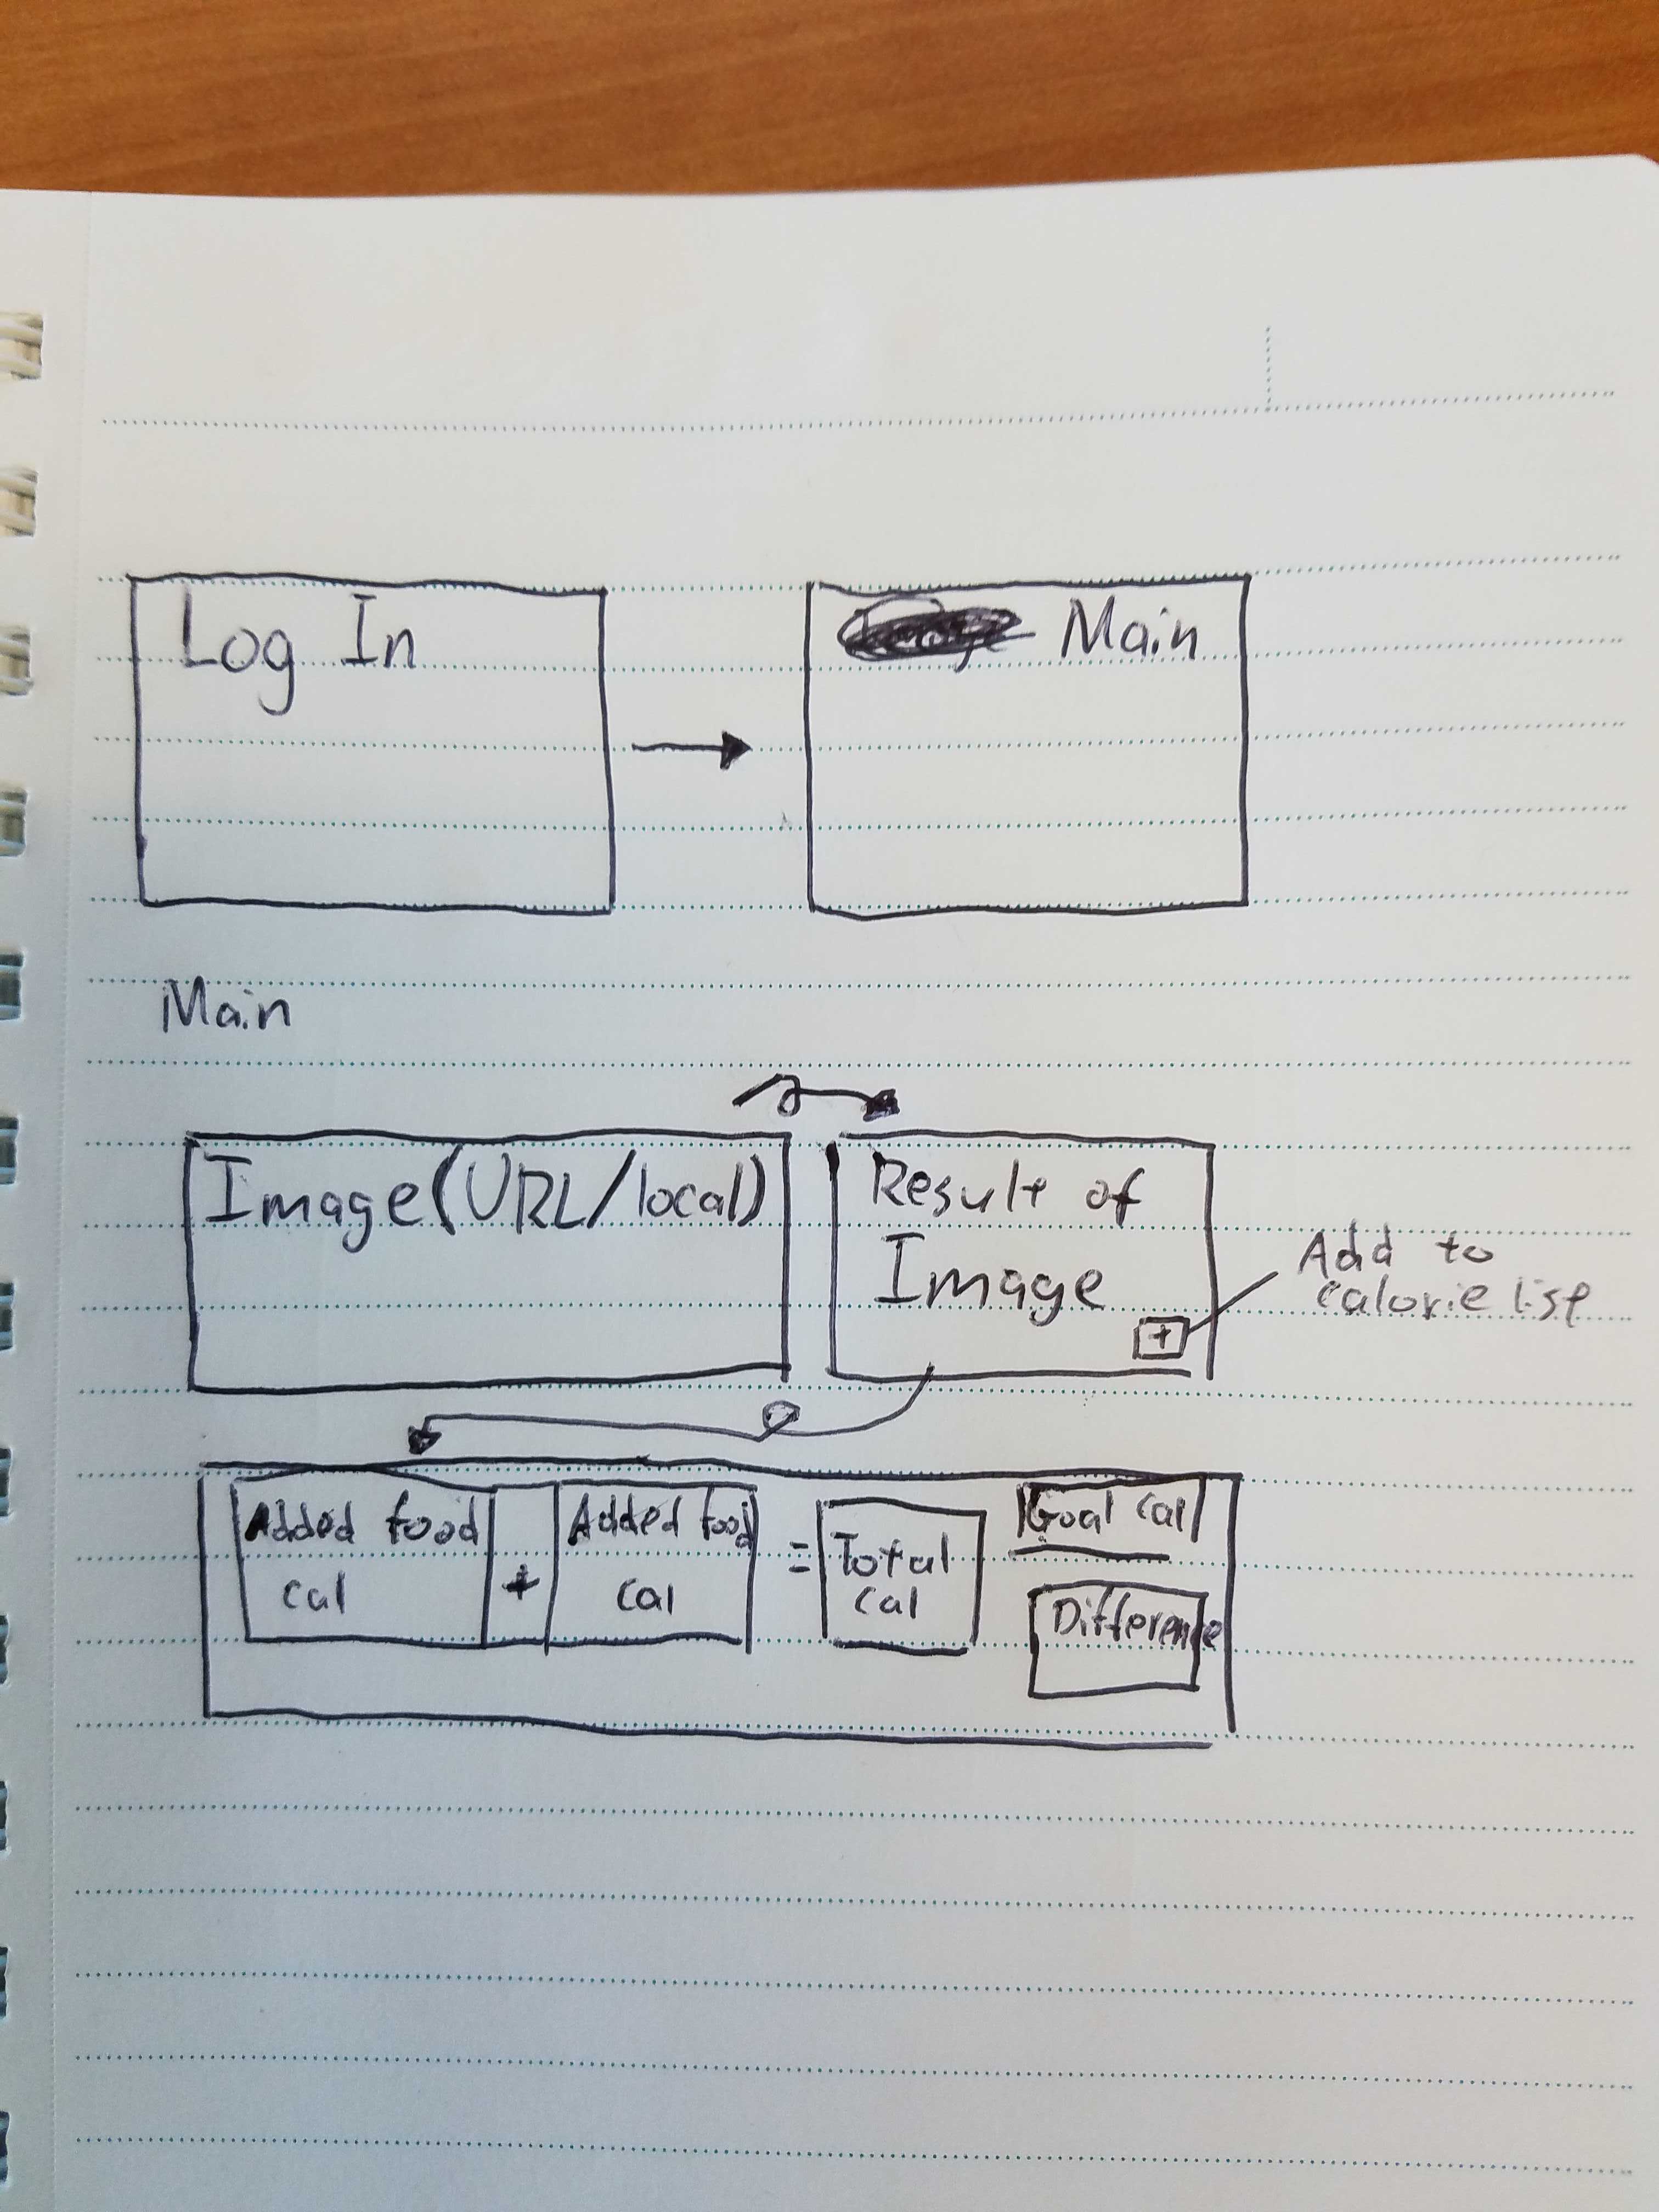 Log In
Main
Main
Image(URL/local)
Result of
Image
+
Add to
calorie list
Added food
cal
+
Added food
cal
=
Total
cal
Goal cal
Difference